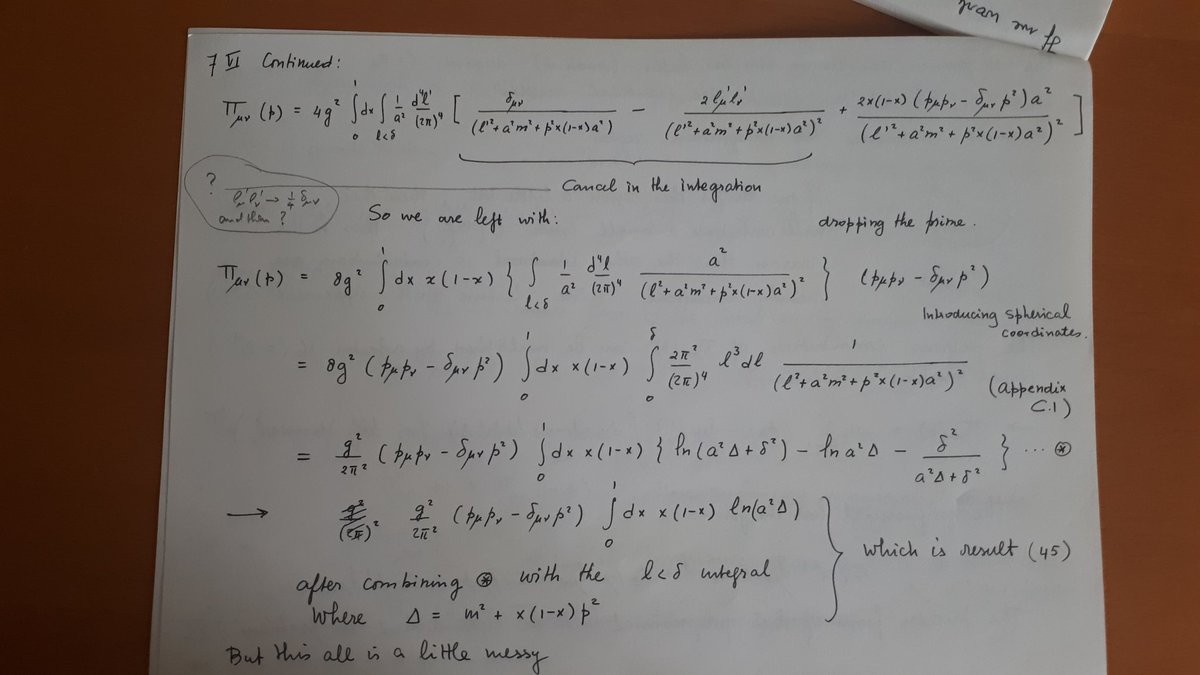 7 VI Continued:
Π_μν(p) = 4g² ∫₀¹ dx ∫_{l<δ} 1/a² d⁴l'/(2π)⁴ [ δ_μν / (l'² + a²m² + p²x(1-x)a²) − 2l'_μ l'_ν / (l'² + a²m² + p²x(1-x)a²)² + 2x(1-x)(p_μp_ν − δ_μν p²)a² / (l'² + a²m² + p²x(1-x)a²)² ]
? Cancel in the integration
l'_μ l'_ν → ¼ δ_μν
and then ?
So we are left with: dropping the prime.
Π_μν(p) = 8g² ∫₀¹ dx x(1-x) { ∫_{l<δ} 1/a² d⁴l/(2π)⁴ a² / (l² + a²m² + p²x(1-x)a²)² } (p_μp_ν − δ_μν p²)
Introducing spherical
coordinates.
= 8g² (p_μp_ν − δ_μν p²) ∫₀¹ dx x(1-x) ∫₀^δ 2π²/(2π)⁴ l³ dl 1 / (l² + a²m² + p²x(1-x)a²)² (appendix
C.1)
= g²/2π² (p_μp_ν − δ_μν p²) ∫₀¹ dx x(1-x) { ln(a²Δ + δ²) − ln a²Δ − δ² / (a²Δ + δ²) } ... ⊛
→ g²/2π² (p_μp_ν − δ_μν p²) ∫₀¹ dx x(1-x) ln(a²Δ)
which is result (45)
after combining ⊛ with the l<δ integral
where Δ = m² + x(1-x)p²
But this all is a little messy